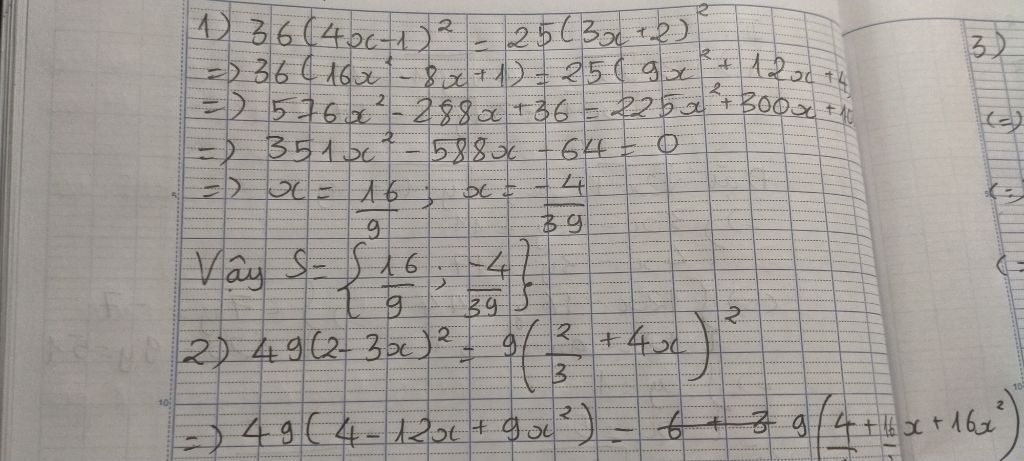 1) 36(4x-1)² = 25(3x+2)²
=> 36(16x² - 8x+1) = 25(9x² + 12x+4
=> 576x² - 288x + 36 = 225x² + 300x + 10
=> 351x² - 588x - 64 = 0
=> x = 16/9 ; x = -4/39
Vậy S = {16/9 ; -4/39}
2) 49(2-3x)² = 9(2/3 + 4x)²
=> 49(4-12x + 9x²) = 6 + 3 9(4 + 16x + 16x²)
3)
<=)
<=